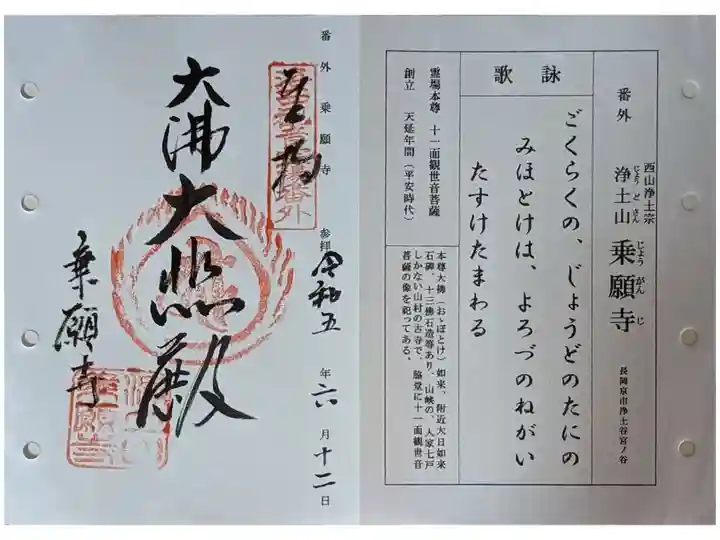 番外
西山浄土宗
浄土山 乗願寺
じょうどさん じょうがんじ
長岡京市浄土谷宮ノ谷
詠歌
ごくらくの、じょうどのたにの
みほとけは、よろづのねがい
たすけたまわる
霊場本尊 十一面観世音菩薩
創立 天延年間(平安時代)
本尊大佛(おゝぼとけ)如来、附近大日如来
石碑、十三佛石造等あり、山峡の、人家七戸
しかない山村の古寺で、脇堂に十一面観世音
菩薩の像を祀ってある。
番外乗願寺 参拝 令和五年六月十二日
番外
大沸大照殿
乗願寺